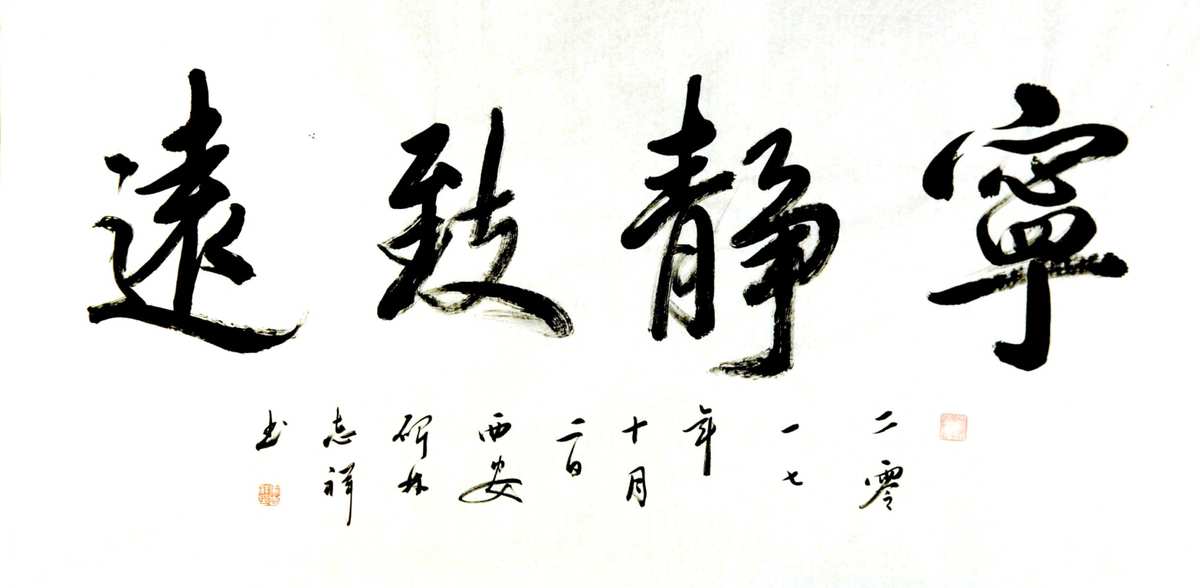 寧静致遠
二零
一七
年
十月
二日
西安
碑林
志祥
书